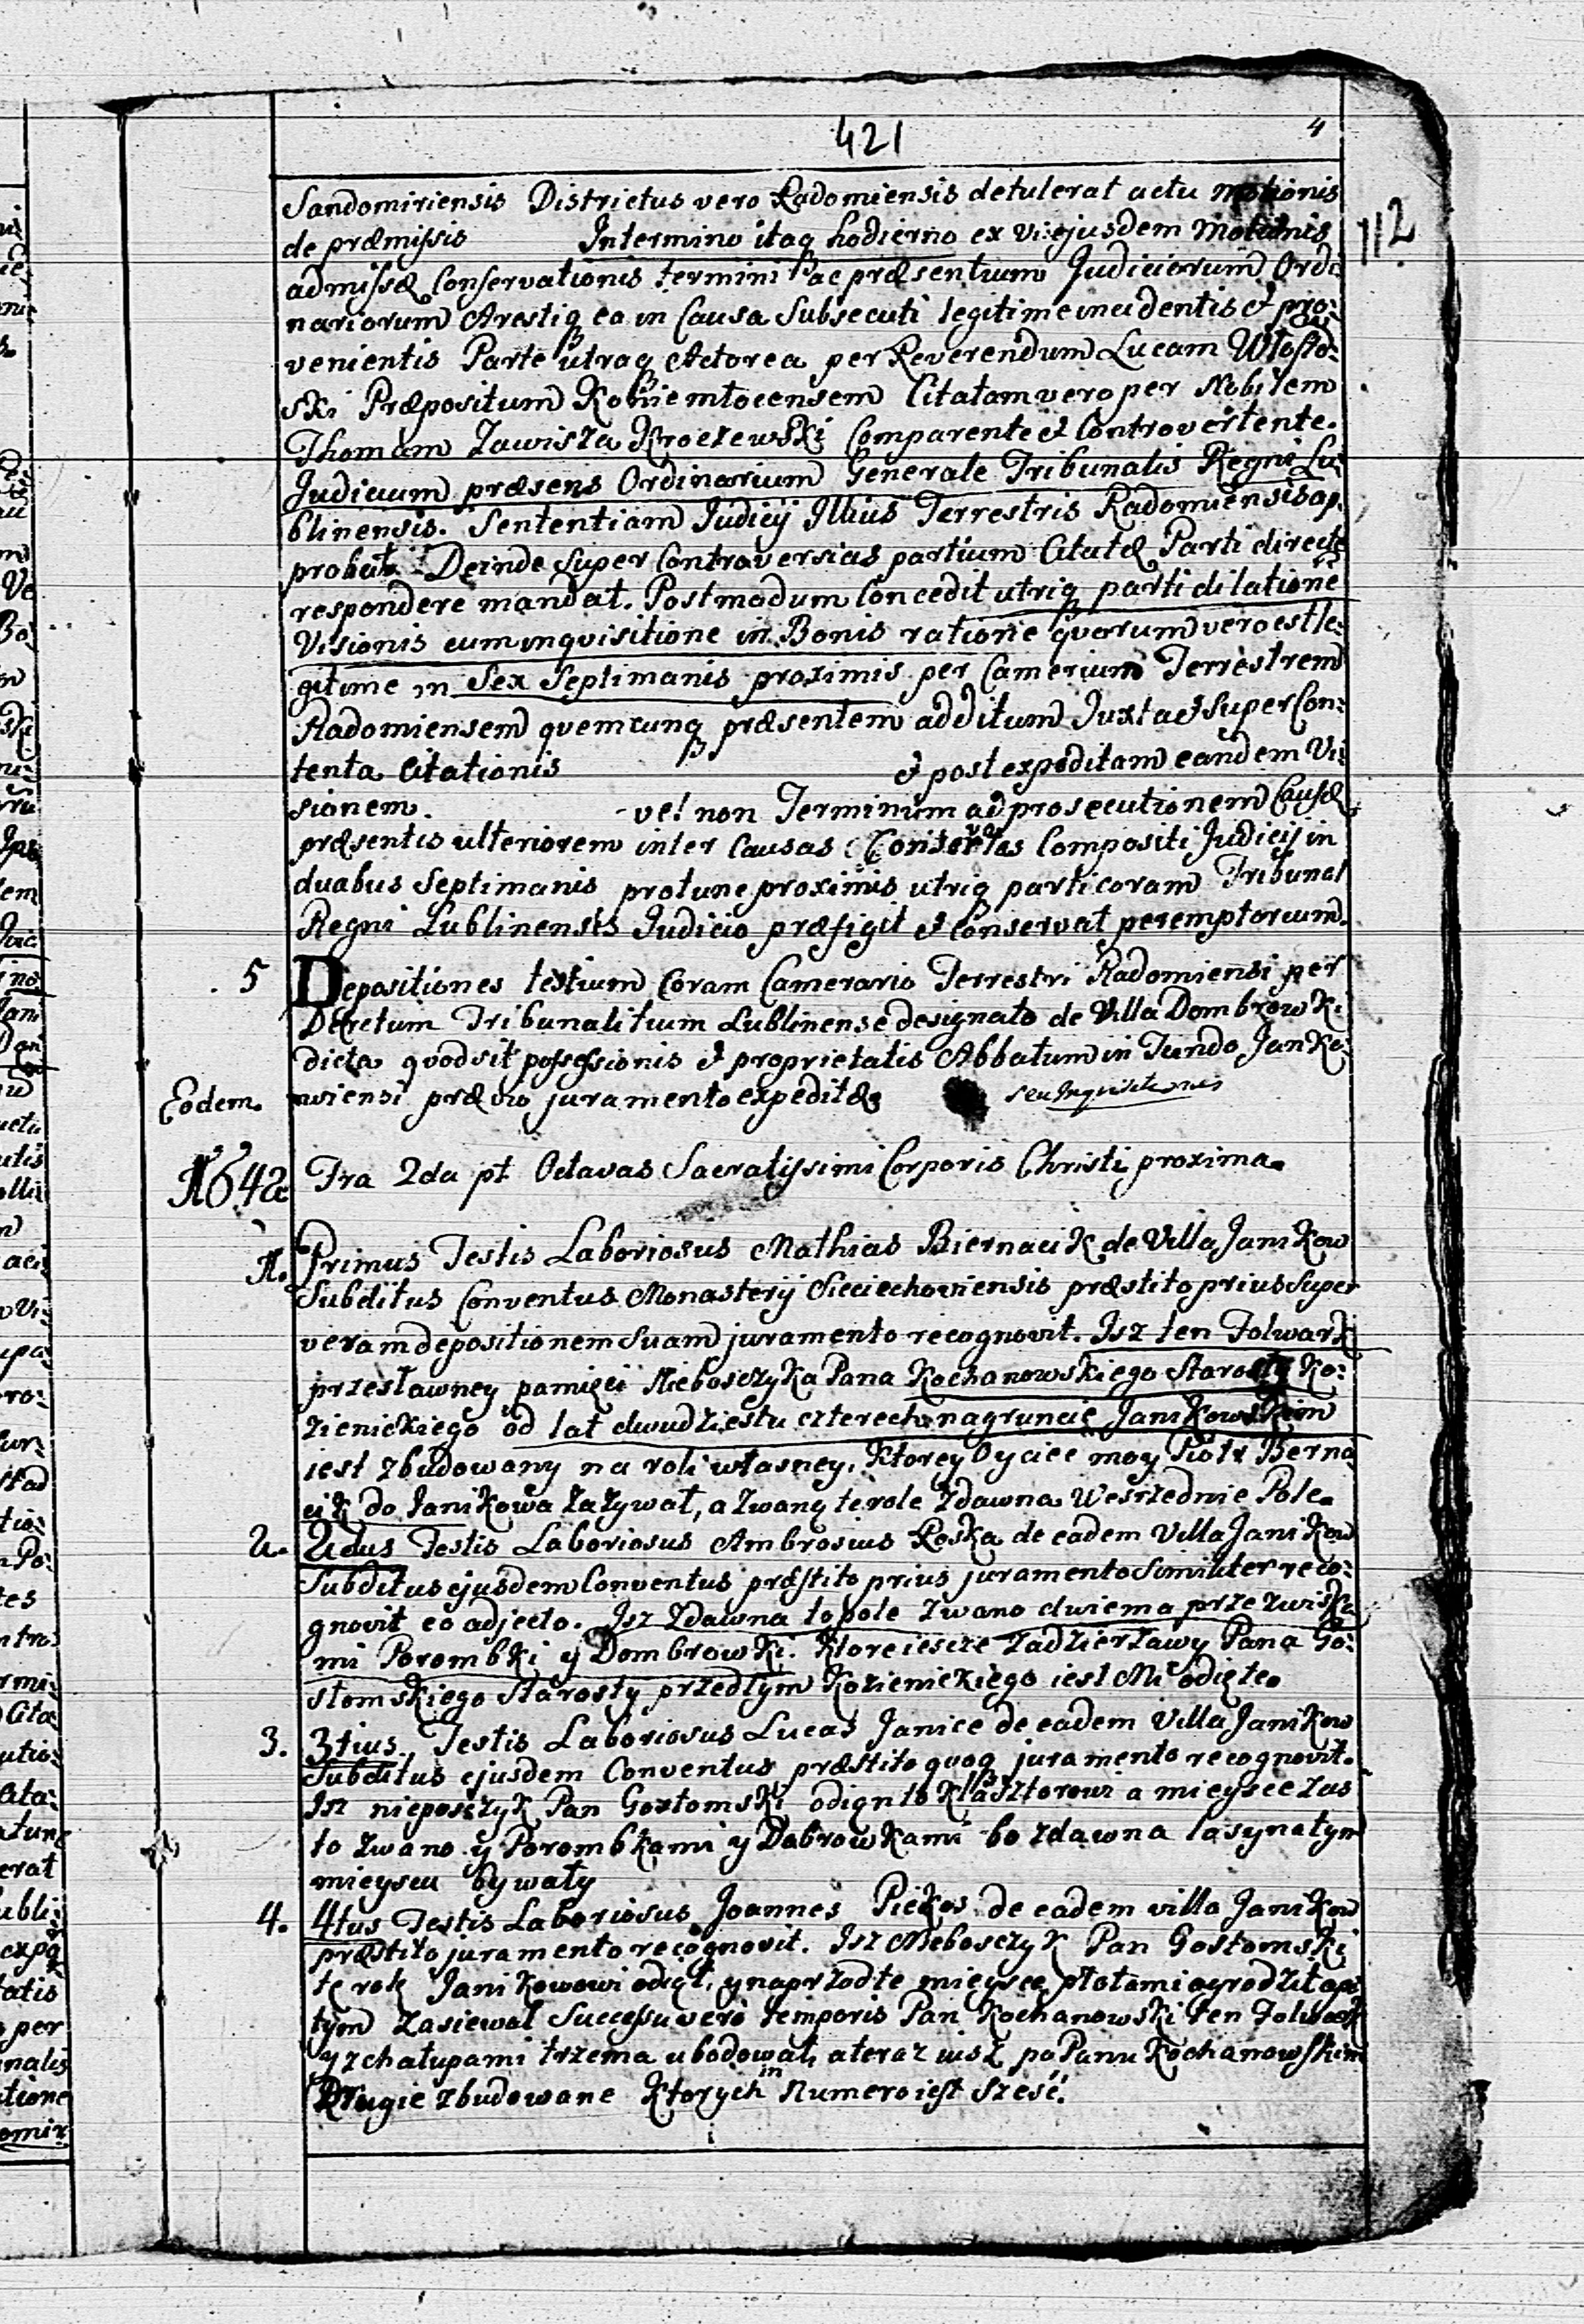 421
4
112
Sandomiriensis Districtus vero Radomiensis detulerat actu motionis
de præmissis Intermino itaq hodierno ex vi ejusdem Motionis
admissæ Conservationis termini ac præsentium Judiciorum Ordi
nariorum Arestiq eo in Causa Subsecuti legitime incidentis & pro:
venientis Parte utraq Actorea per Reverendum Lucam Włosto:
ski Præpositum Koniemłocensem Citatam vero per Nobilem
Thomam Zawisza Kroczewski Comparente & Controvertente.
Judicium præsens Ordinarium Generale Tribunalis Regni Lu
blinensis. Sententiam Judicij Illius Terrestris Radomiensis ap:
probat Deinde Super Controversias partium Citatæ Parti directe
respondere mandat. Postmodum Concedit utriq parti dilatione
Visionis cum inquisitione in Bonis ratione quorum vero est le:
gitime in Sex Septimanis proximis per Camerium Terrestrem
Radomiensem quemcunq præsentem additum Juxta & Super Con:
tenta Citationis & post expeditam eandem Vi:
sionem. vel non Terminum ad prosecutionem Causæ
præsentis ulteriorem inter Causas Conservatas Compositi Judicij in
duabus Septimanis protunc proximis utriq parti coram Tribunal
Regni Lublinensis Judicio præfigit & Conservat peremptorium.
5 Depositiones testium Coram Camerario Terrestri Radomiensi per
Decretum Tribunalitium Lublinense designato de Villa Dombrowki
dicta quod sit possessionis & proprietatis Abbatum in Fundo Janko:
Eodem. wiensi prævio juramento expeditæ seu Inquisitionis
1642 Fra 2da pt Octavas Sacratissimi Corporis Christi proxima.
1. Primus Testis Laboriosus Mathias Biernacik de Villa Janikow
Subditus Conventus Monasterij Sieciechoviensis præstito prius Super
veram depositionem Suam juramento recognovit. Isz ten Folwark
przesławney pamięci Nieboszczyka Pana Kochanowskiego Starosty Ko:
zienickiego od lat dwudziestu czterech na gruncie Janikowskim
iest zbudowany na roli własney, Ktorey Oyciec moy Piotr Berna
cik do Janikowa zazywał, a zwany te role zdawna Wesrzednie Pole.
2. 2dus Testis Laboriosus Ambrosius Roska de eadem Villa Janikow
Subditus ejusdem Conventus præstito prius juramento Similiter reco:
gnovit eo adjecto. Isz zdawna to pole zwano dwiema przezwiska
mi Porombki y Dombrowki. Ktore iescze zadzierzawy Pana Go:
stomskiego Starosty przedtym Kozienickiego iest Mi odięte.
3. 3tius. Testis Laboriosus Lucas Janice de eadem Villa Janikow
Subditus ejusdem Conventus præstito quoq juramento recognovit.
Isz nieposzzyk Pan Gostomski odiąn to Klasztorowi a mieysce zas
to zwano y Porombkami y Dabrowkami bo zdawna lasy na tym
mieyscu bywały
4. 4tus Testis Laboriosus Joannes Piekos de eadem villa Janikow
præstito juramento recognovit. Isz Nieboszczyk Pan Gostomski
tę rolę Janikowowi odiął, y naprzod te mieysce płotami ogrodził a po
tym zasiewał Successu vero temporis Pan Kochanowski ten Folwark
y z chałupami trzema ubodował, a teraz iusz po Panu Kochanowskim
Drugie zbudowane Ktorych in Numero iest sześć.